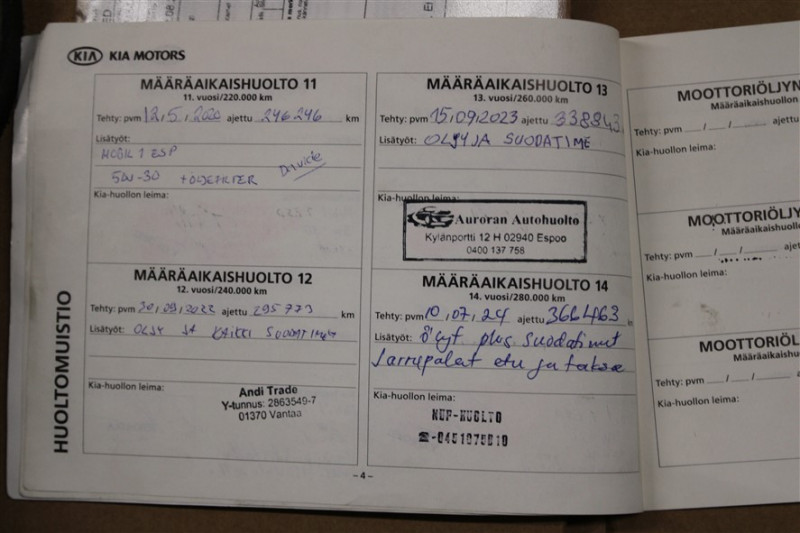 KIA KIA MOTORS
MÄÄRÄAIKAISHUOLTO 11
11. vuosi/220.000 km
Tehty: pvm 12,5, 2020 ajettu 246246 km
Lisätyöt:
MOBIL 1 ESP
5W-30
Kia-huollon leima:
MÄÄRÄAIKAISHUOLTO 12
12. vuosi/240.000 km
Tehty: pvm 20,09,2022 ajettu 295773 km
Lisätyöt: OLJY JA KAIKKI
Kia-huollon leima:
Andi Trade
Y-tunnus: 2863549-7
01370 Vantaa
HUOLTOMUISTIO
MÄÄRÄAIKAISHUOLTO 13
13. vuosi/260.000 km
Tehty: pvm 15,09,2023 ajettu 338943
Lisätyöt: OLJY JA SUODATIME
Kia-huollon leima:
Auroran Autohuolto
Kylänportti 12 H 02940 Espoo
0400 137 758
MÄÄRÄAIKAISHUOLTO 14
14. vuosi/280.000 km
Tehty: pvm 10,07,24 ajettu 366463
Lisätyöt: Öljyt plus suodatimet
Jarrupalat etu ja takaa
Kia-huollon leima:
KUP-HUOLTO
- 4 -
MOOTTORIÖLJYN
Määräaikaishuollon
Tehty: pvm __/__/__ ajettu
Kia-huollon leima:
MOOTTORIÖLJYN
Määräaikaishuollon
Tehty: pvm __/__/__ ajettu
Kia-huollon leima:
MOOTTORIÖLJY
Määräaikaishuo
Tehty: pvm __/__/__ ajettu
Kia-huollon leima: